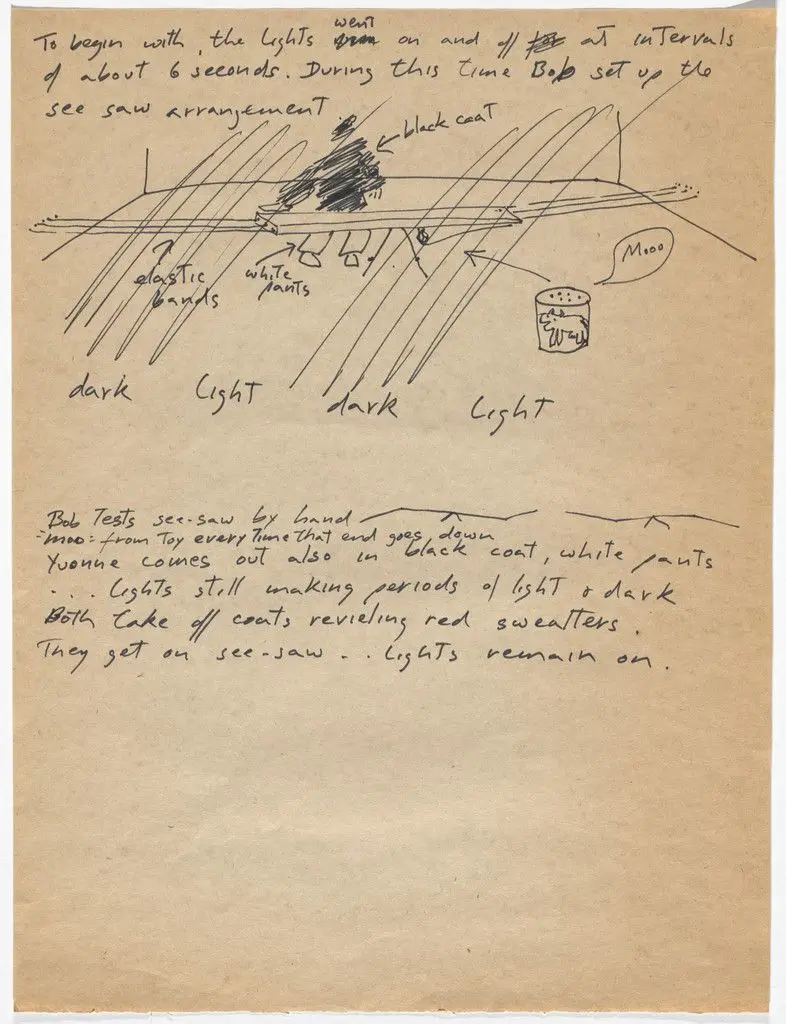 To begin with, the lights went on and off at intervals
of about 6 seconds. During this time Bob set up the
see saw arrangement
black coat
Mooo
elastic
bands
white
pants
dark light dark light
Bob Tests see-saw by hand
"moo" from Toy every time that end goes down
Yvonne comes out also in black coat, white pants
... lights still making periods of light & dark
Both take off coats revieling red sweatters.
They get on see-saw ... lights remain on.